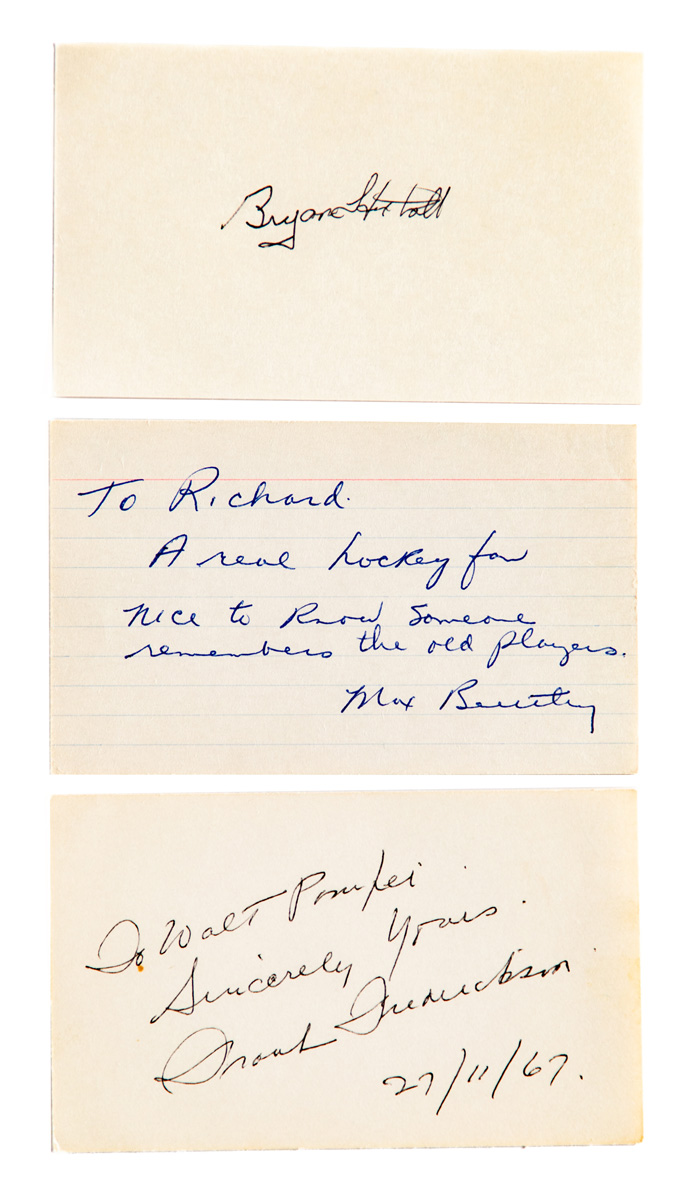 Bryan Hextall
To Richard.
A real hockey fan
nice to know someone
remembers the old players.
Max Bentley
To Walt Pompei
Sincerely Yours.
Frank Frederickson
27/11/67.